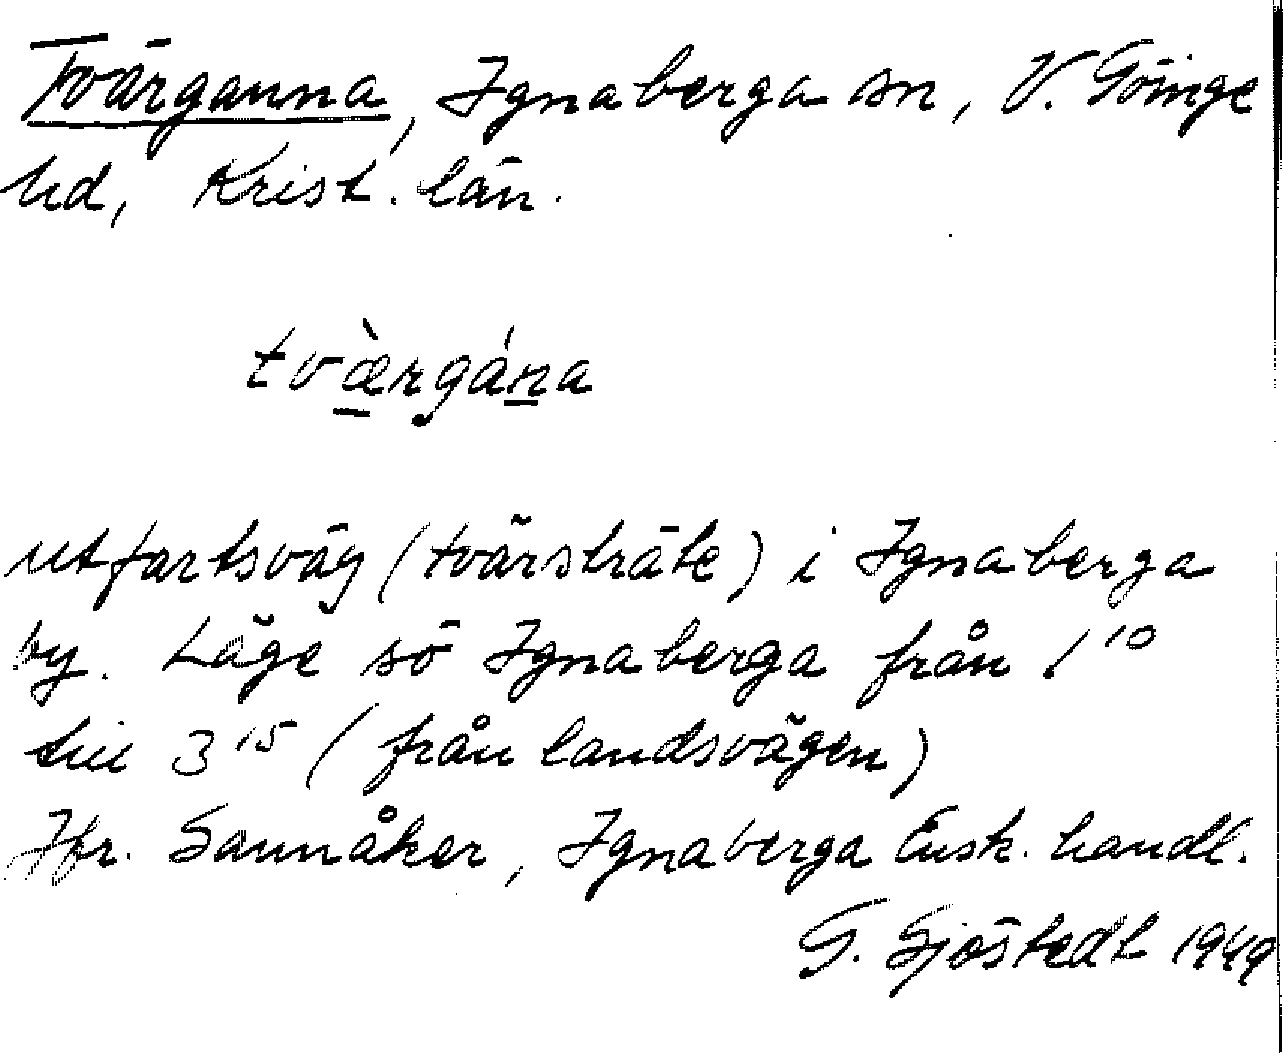 Tvärganna, Ignaberga sn, V. Göinge
hd, Krist. län.
tvæ̀rgána
utfartsväg (tvärsträte) i Ignaberga
by. Läge sö Ignaberga från 1 10
till 3 15 (från landsvägen)
Jfr. Sannåker, Ignaberga Ensk. handl.
G. Sjöstedt 1949